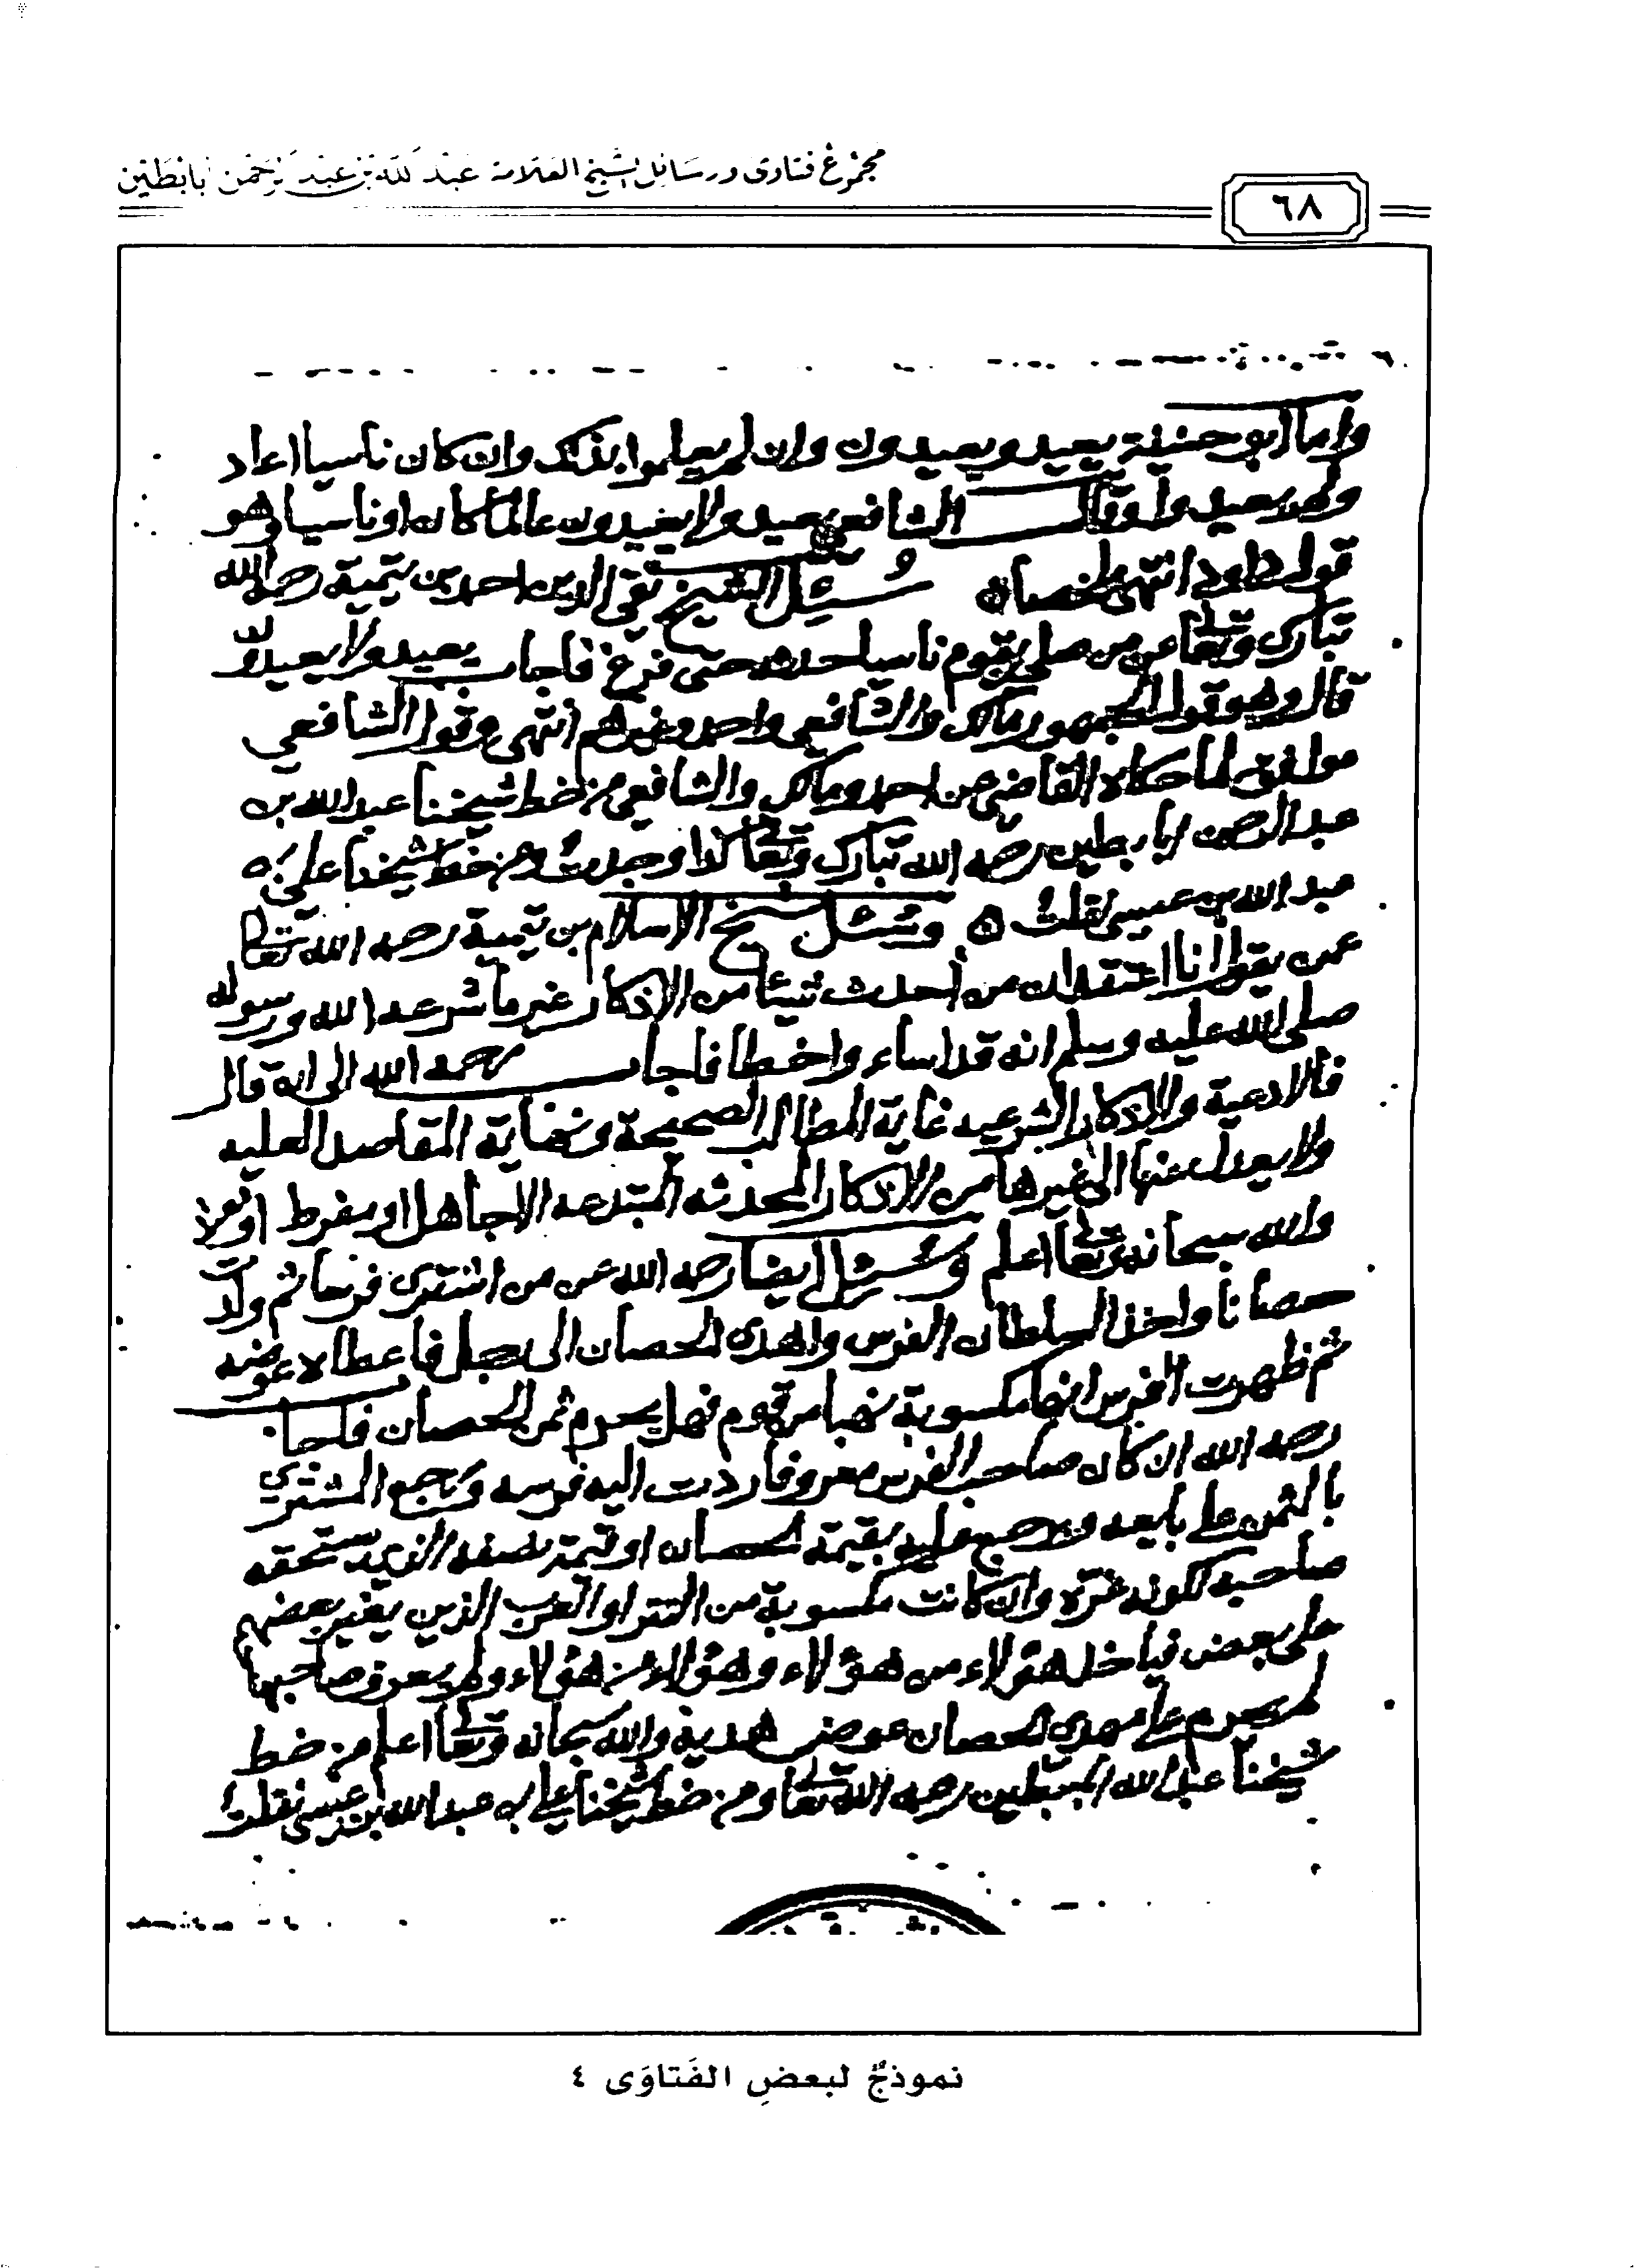 مجموع فتاوى ورسائل الشيخ العلامة عبد الله بن عبد الرحمن أبابطين
٦٨
واما أبو حنيفة يعيد ويعيدون وان لم يعلموا بذلك وان كان ناسيا اعاد
الشافعي يعيد ولا يعيدون عالما كان او ناسيا وهو
قول داود انتهى ملخصا ه سُئِل الشيخ تقي الدين احمد بن تيمية رحمه الله
تبارك وتعالى عن من صلى بقوم ناسيا حدثه حتى فرغ فاجاب يعيد ولا يعيدون
قال وهو قول الجمهور مالك والشافعي واحمد وغيرهم انتهى وقول الشافعي
موافق لما حكاه القاضي عن احمد ومالك والشافعي من خط شيخنا عبد الله بن
عبد الرحمن ابا بطين رحمه الله تبارك وتعالى كذا وجدت ومن خط شيخنا علي بن
عبد الله بن عيسى نقلت ه وسُئل شيخ الاسلام بن تيمية رحمه الله تعالى
عمن يقول انا اعتقد ان من أحدث شيئا من الاذكار غير ما شرعه الله ورسوله
صلى الله عليه وسلم انه قد اساء واخطا فاجاب رحمه الله الى ان قال
فالادعية والاذكار الشرعيه غاية المطالب الصحيحة ونهاية المقاصد العليه
ولا يعدل عنها الى غيرها من الاذكار المحدثه المبتدعه الا جاهل او مفرط او
والله سبحانه وتعالى اعلم وسُئِل ايضا رحمه الله عن من اشترى فرسا ثم ولدت
حصانا واخذ السلطان الفرس واهدى الحصان الى رجل فاعطاه عوضه
ثم ظهرت الفرس انها مكسوبة نهبا من قوم فهل يحرم ثمن الحصان فاجاب
رحمه الله ان كان صاحب الفرس معروفا ردت اليه فرسه ورجع المشتري
بالثمن على بايعه ويرجع عليه بقيمة الحصان او قيمة نصفه الذي يستحقه
صاحبه لكونه غره وان كانت مكسوبة من التتر او العرب الذين يغير بعضهم
على بعض فياخذ هؤلاء من هؤلاء وهؤلاء من هؤلاء ولم يعرف صاحبها
لم يحرم على مهدي الحصان عوض هديته والله سبحانه وتعالى اعلم من خط
شيخنا عبد الله البتيطين رحمه الله تعالى ومن خط شيخنا علي بن عبد الله بن عيسى نقلت
نموذجٌ لبعضِ الفَتاوَى ٤